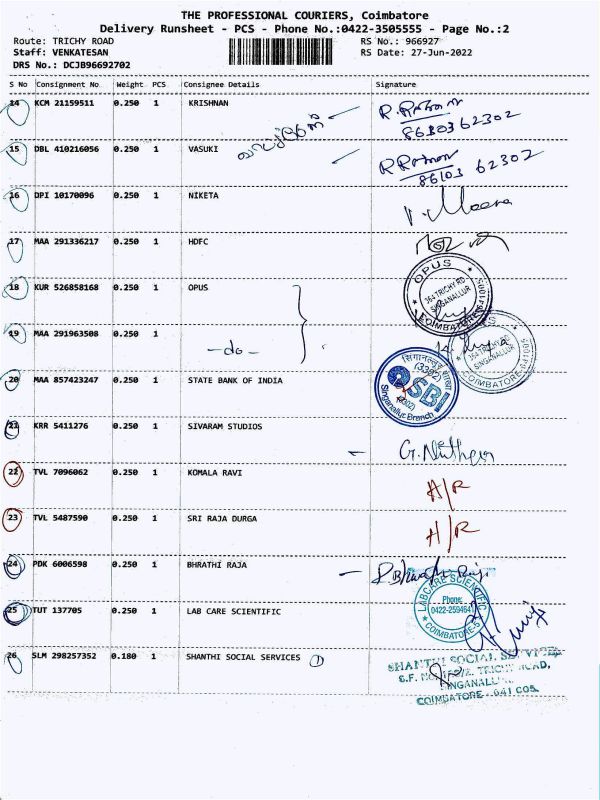 THE PROFESSIONAL COURIERS, Coimbatore
Delivery Runsheet - PCS - Phone No.:0422-3505555 - Page No.:2
Route: TRICHY ROAD RS No.: 966927
Staff: VENKATESAN RS Date: 27-Jun-2022
DRS No.: DCJB96692702
S No Consignment No Weight PCS Consignee Details Signature
14 KCM 21159511 0.250 1 KRISHNAN
86103 62302
15 DBL 410216056 0.250 1 VASUKI
86103 62302
16 DPI 10170096 0.250 1 NIKETA
V. Meena
17 MAA 291336217 0.250 1 HDFC
18 KUR 526858168 0.250 1 OPUS
OPUS
36A TRICHY RD
SINGANALLUR
COIMBATORE
19 MAA 291963508 0.250 1 -do-
36A TRICHY RD
SINGANALLUR
COIMBATORE
20 MAA 857423247 0.250 1 STATE BANK OF INDIA
सिंगानल्लूर शाखा
SBI
Singanallur Branch
21 KRR 5411276 0.250 1 SIVARAM STUDIOS
22 TVL 7096062 0.250 1 KOMALA RAVI
A/R
23 TVL 5487590 0.250 1 SRI RAJA DURGA
A/R
24 PDK 6006598 0.250 1 BHRATHI RAJA
25 TUT 137705 0.250 1 LAB CARE SCIENTIFIC
LABCARE SCIENTIFIC
Phone:
0422-2594641
COIMBATORE-5
26 SLM 298257352 0.180 1 SHANTHI SOCIAL SERVICES 1
SHANTHI SOCIAL SERVICES
TRICHY ROAD,
SINGANALLUR
COIMBATORE - 641 005.